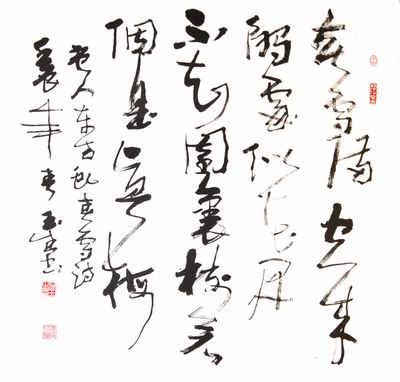 春雪满空来
觸處似花開
不知園裏樹若
個是真梅
唐人东方虬春雪诗
年春